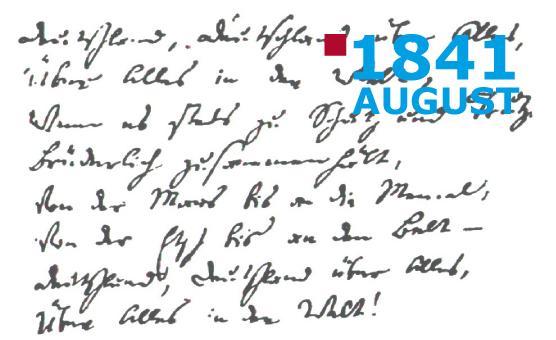 Deutschland, Deutschland über Alles,
1841
AUGUST
Über Alles in der Welt,
Wenn es stets zu Schutz und Trutz
Brüderlich zusammenhält,
Von der Maas bis an die Memel,
Von der Etsch bis an den Belt –
Deutschland, Deutschland über Alles,
Über Alles in der Welt!